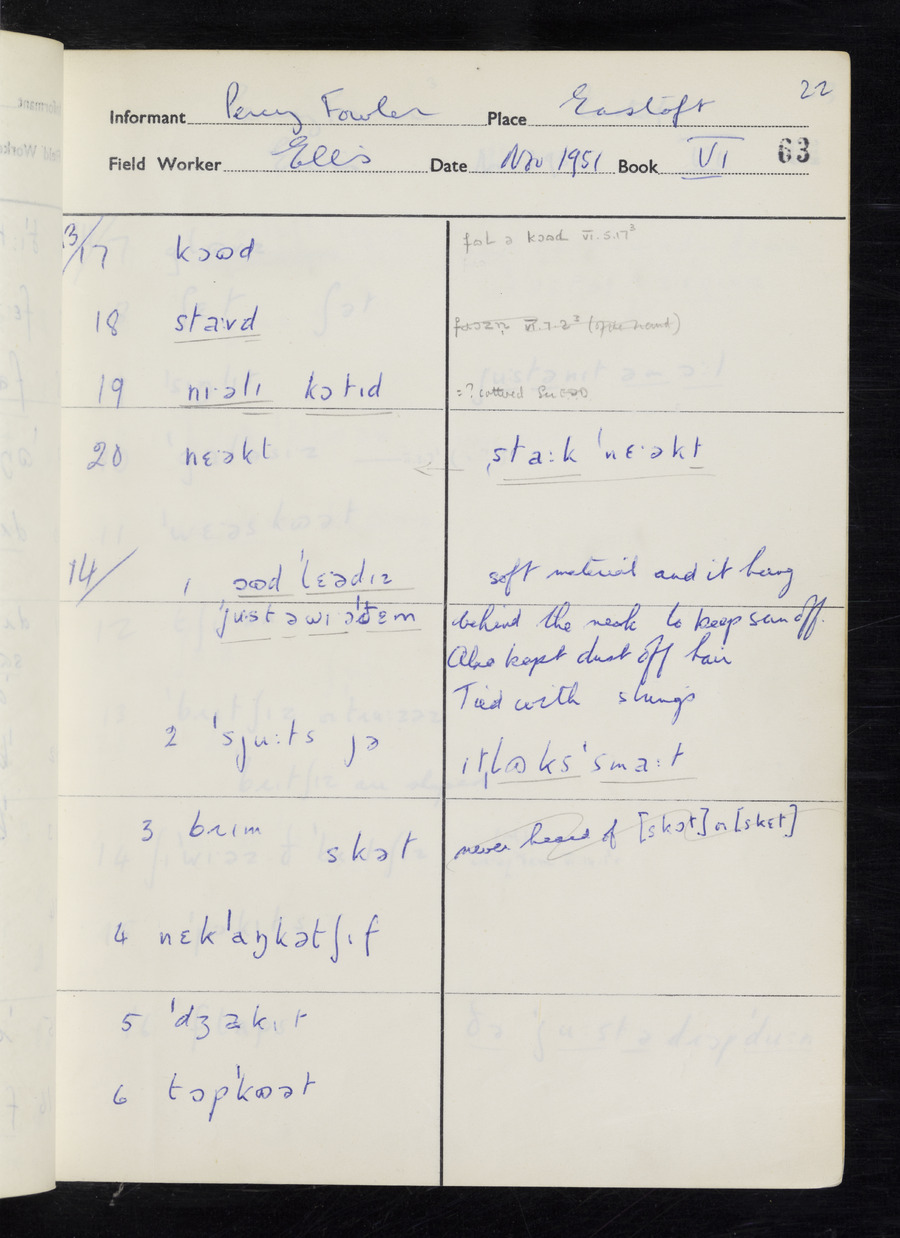 22
Informant Percy Fowler Place Eastoft
Field Worker Ellis Date Nov 1951 Book VI 63
13/17 kɔʊd
fɒl ə kɔʊd VI.5.17³
18 sta:vd
VI.7.2³ (of the hand)
19 nɪəlɪ kɔtɪd
= ? cottered See
20 nɛ·əkt
ˌsta:k ˈnɛ·əkt
14/ 1 ɔʊd ˈlɛ·ədɪz
soft material and it hung
ˈju·st ə wɪə ðɛm
behind the neck to keep sun off.
Also kept dust off hair
Tied with strings
2 ˈsju:ts jə
ɪt ˌlʊks ˈsma:t
3 brɪm
skɔt
never heard of [skɔt] or [skɛt]
4 nɛkˈaŋkətʃɪf
5 ˈdʒakɪt
6 tɔpˈkʊət